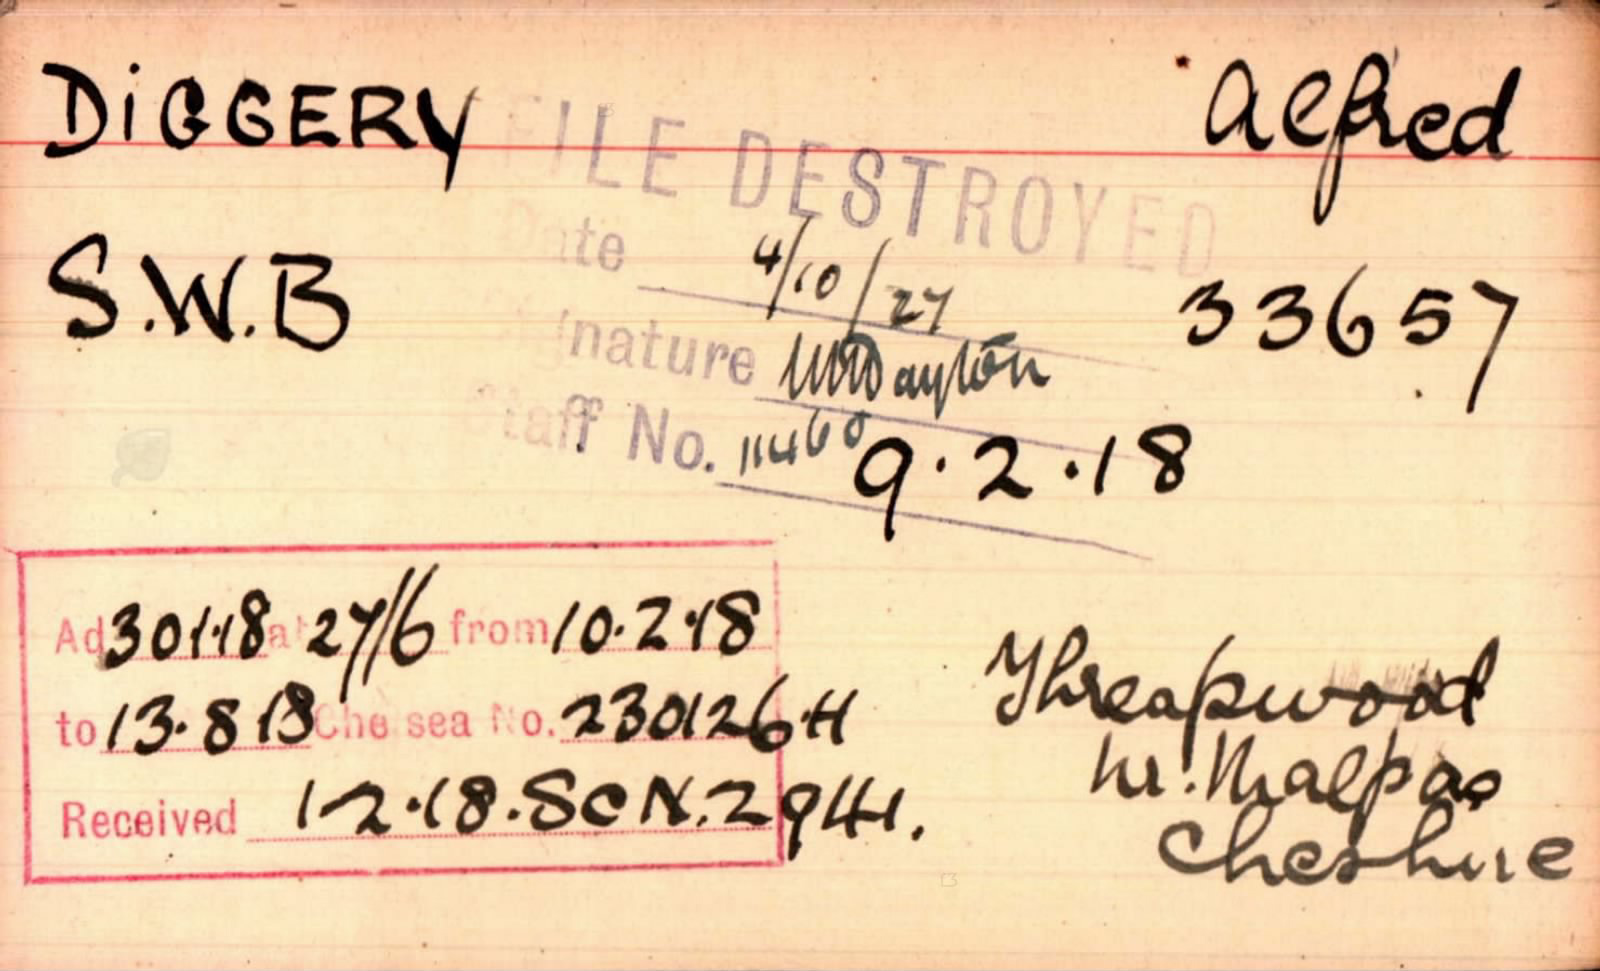 DIGGERY Alfred
FILE DESTROYED
Date 4/10/27
S.W.B 33657
Signature
Staff No. 11460
9.2.18
Ad 30.1.18 at 27/6 from 10.2.18
to 13.8.18 Chelsea No. 230126.H
Received 1-2.18. SCN.2941.
Threapwood
nr. Malpas
Cheshire